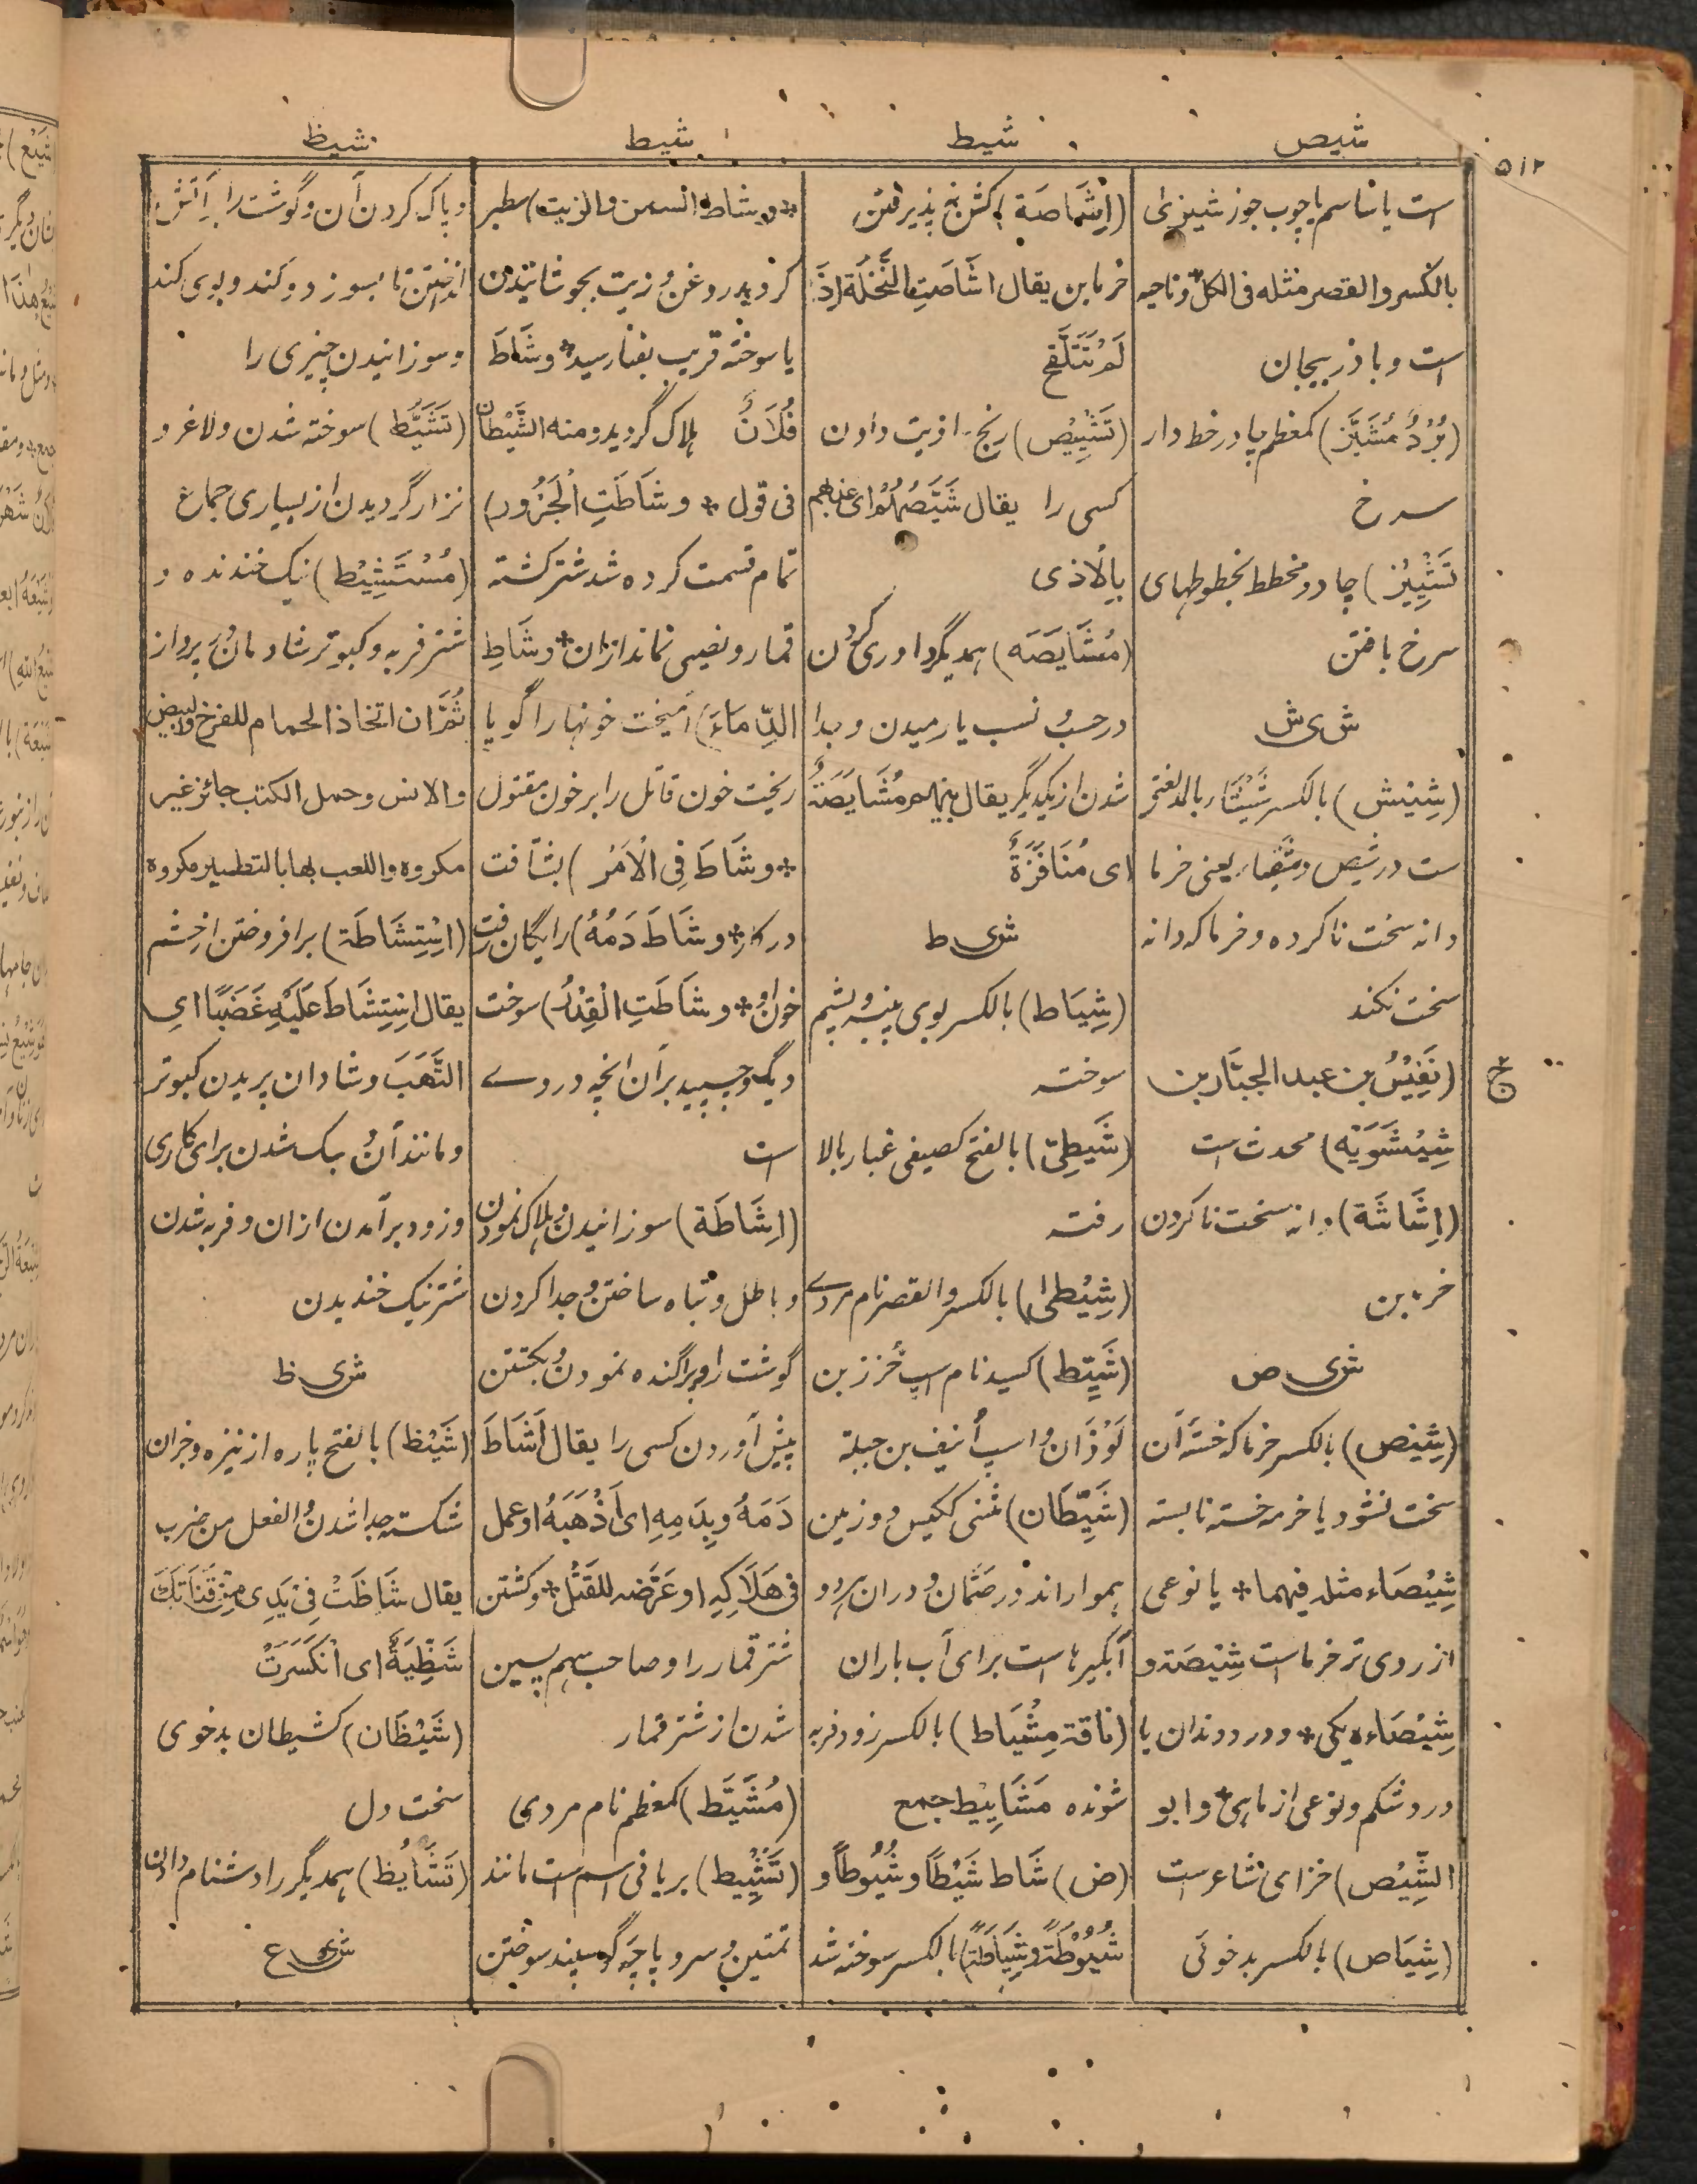 ۵۱۲
شیص
شیط
شیط
شیظ
است یا ساسم یا چوب جوز شیزی
بالکسر والقصر مثله فی الکل و ناحیه
است و باذربیجان
(بُرْدٌ مُشَیَّز) کمعظم چادر خط دار
سرخ
تَشْیِیْز) چادر مخطط بخطوطهای
سرخ بافتن
ش ی ش
(شِیْش) بالکسر شَیْشَاء بالمد لغتی
ست در شیص و شیصاء یعنی خرما
دانه سخت ناکرده و خرما که دانه
سخت نکند
ج
(نَفِیْسُ بن عبد الجبّار بن
شِیْشَوَیْه) محدث است
(اِشَاشَة) دانه سخت ناکردن
خرمابن
ش ی ص
(شِیْص) بالکسر خرما که خسته آن
سخت نشود یا خرمه خسته نابسته
شِیْصَاء مثله فیهما * یا نوعی
از ردی تر خرما است شِیْصَة و
شِیْصَاءه یکی * و درد دندان یا
درد شکم و نوعی از ماهی * و ابو
الشِّیْص) خزاعی شاعر ست
(شِیَاص) بالکسر بدخوئی
(اِشَاصَة) کشن نه پذیرفتن
خرما بن یقال اشَاصَتِ النَّخْلَة اِذَا
لَمْ تَتَلَقَّح
(تَشْیِیْص) رنج و اذیت دادن
کسی را یقال شَیَّصُوْا ای عذبهم
بِالْاَذی
(مُشَایَصَه) همدیگر داوری کردن
در حسب و نسب یا رمیدن و جدا
شدن از یکدیگر یقال بینهم مُشَایَصَةٌ
ای مُنَافَرَةٌ
ش ی ط
(شِیَاط) بالکسر بوی پنبه و پشم
سوخته
(شَیِّطِیّ) بالفتح کصیفی غبار بالا
رفته
(شِیْطٰی) بالکسر والقصر نام مردے
(شَیِّط) کسید نام اسپ خُزز بن
لَوْذَان و اسپ اُنیف بن جبلة
(شَیِّطَان) مُثنی ککیس دو زمین
هموار اند در صَمَّان و در ان هر دو
آبگیرها است برای آب باران
(ناقة مِشْیَاط) بالکسر زود فربه
شونده مَشَایِیْط جمع
(ض) شَاط شَیْطًا و شُیُوْطًا و
شُیُوْطَةً و شِیَاطَةً بالکسر سوخته شد
* و شاط السمن والزیت) سطبر
گردید روغن و زیت بجوشانیدن
یا سوخته قریب بفنا رسید * و شَاطَ
فُلَانٌ هلاک گردید و منه الشَّیْطَان
فی قول * و شَاطَتِ الْجَزُور)
تمام قسمت کرده شد شتر کشته
قمار و نصیبی نماند ازان * و شَاطِ
الدِّمَاءَ) آمیخت خونها را گویا
ریخت خون قاتل را بر خون مقتول
* و شَاطَ فِی الْاَمْر) بشتافت
در کار * و شَاطَ دَمُهُ) رایگان رفت
خون او * و شَاطَتِ الْقِدْرُ) سوخت
دیگ و چسپید بر آن انچه در وے
است
(اِشَاطَة) سوزانیدن و هلاک نمودن
و باطل و تباه ساختن و جدا کردن
گوشت را و پراگنده نمودن و بکشتن
پیش آوردن کسی را یقال اَشَاطَ
دَمَهُ وبِدَمِهِ ای اَذْهَبَهُ او عمل
فی هَلَاکِهِ او عَرَّضه للقَتْل * و کشتن
شتر قمار را و صاحب سهم پسین
شدن از شتر قمار
(مُشَیَّط) کمعظم نام مردی
(تَشْیِیْط) بر یا فی اسم است مانند
تمتین و سر و پاچهٔ گوسپند سوختن
و پاک کردن آن و گوشت را بآتش
انداختن تا بسوزد و کند و بوی کند
و سوزانیدن چیزی را
(تَشَیُّط) سوخته شدن و لاغر و
نزار گردیدن از بسیاری جماع
(مُسْتَشِیْط) نیک خندنده و
شتر فربه و کبوتر شادمان پرواز
ثُمَّ ان اتخاذ الحمام للفرخ والبیض
والانس و حمل الکتب جائز غیر
مکروه واللعب بها بالتطییر مکروه
(اِسْتِشَاطَة) بر افروختن از خشم
یقال اِسْتَشَاطَ عَلَیْهِ غَضَبًا ای
الْتَهَبَ و شادان پریدن کبوتر
و مانند آن و سبک شدن برای کاری
و زود بر آمدن ازان و فربه شدن
شتر نیک خندیدن
ش ی ظ
(شَیْظ) بالفتح پاره از نیزه و جزان
شکسته جدا شدن و الفعل من ضرب
یقال شَاظَتْ فِیْ یَدِی مِنْ قَنَاتِکَ
شَظِّیَةٌ ای انْکَسَرَتْ
(شَیْظَان) کشیطان بدخوی
سخت دل
(تَشَایُظ) همدیگر را دشنام دادن
ش ی ع